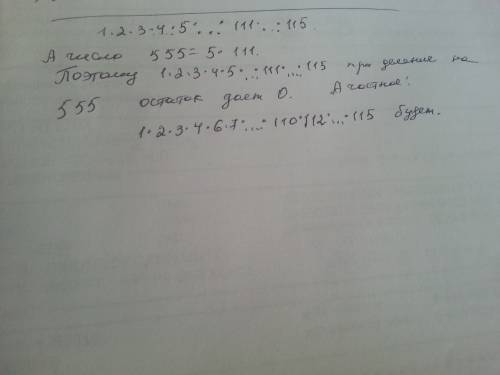 1·2·3·4·5·...·111·...·115.
А число 555=5·111.
Поэтому 1·2·3·4·5·...·111·...·115 при деление на
555 остаток дает 0. А частное:
1·2·3·4·6·7·...·110·112·...·115 будет.